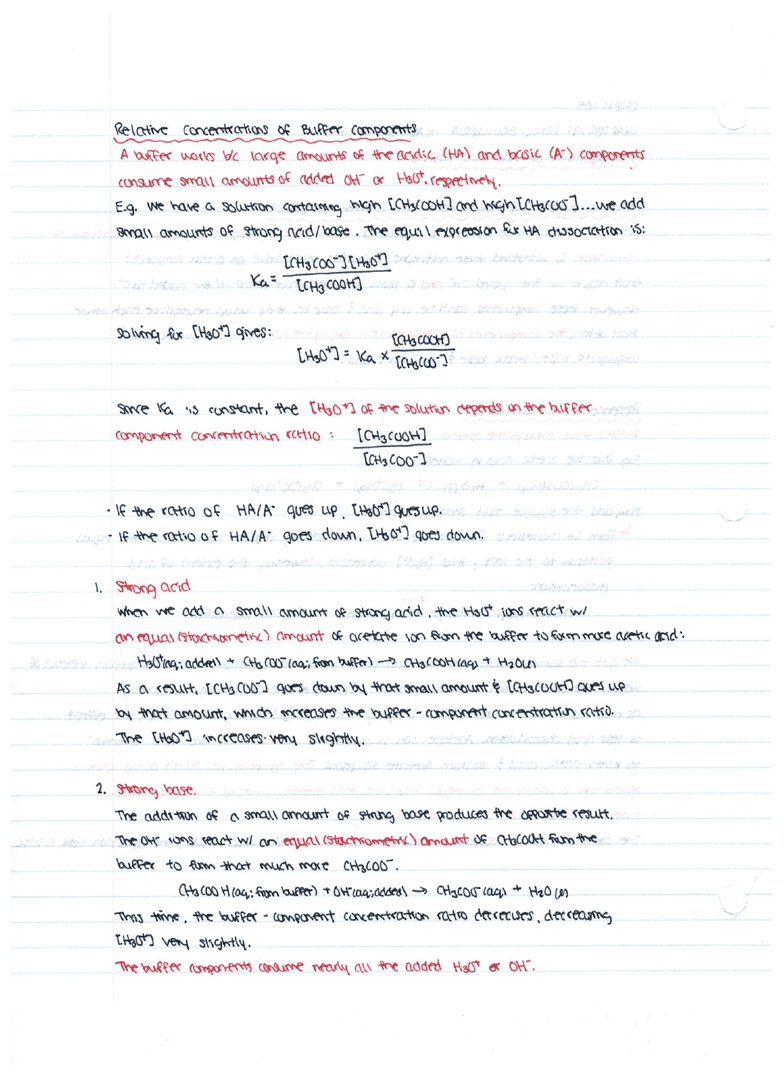 Relative Concentrations of Buffer Components
A buffer works b/c large amounts of the acidic (HA) and basic (A⁻) components
consume small amounts of added OH⁻ or H₃O⁺, respectively.
E.g. We have a solution containing high [CH₃COOH] and high [CH₃COO⁻]...we add
small amounts of strong acid/base. The equil expression for HA dissociation is:
Ka = [CH₃COO⁻][H₃O⁺] / [CH₃COOH]
Solving for [H₃O⁺] gives:
[H₃O⁺] = Ka × [CH₃COOH] / [CH₃COO⁻]
Since Ka is constant, the [H₃O⁺] of the solution depends on the buffer
component concentration ratio : [CH₃COOH] / [CH₃COO⁻]
· If the ratio of HA/A⁻ goes up, [H₃O⁺] goes up.
· If the ratio of HA/A⁻ goes down, [H₃O⁺] goes down.
1. Strong acid
When we add a small amount of strong acid, the H₃O⁺ ions react w/
an equal (stoichiometric) amount of acetate ion from the buffer to form more acetic acid:
H₃O⁺(aq; added) + CH₃COO⁻(aq; from buffer) → CH₃COOH(aq) + H₂O(l)
As a result, [CH₃COO⁻] goes down by that small amount & [CH₃COOH] goes up
by that amount, which increases the buffer-component concentration ratio.
The [H₃O⁺] increases very slightly.
2. Strong base.
The addition of a small amount of strong base produces the opposite result.
The OH⁻ ions react w/ an equal (stoichiometric) amount of CH₃COOH from the
buffer to form that much more CH₃COO⁻.
CH₃COOH(aq; from buffer) + OH⁻(aq; added) → CH₃COO⁻(aq) + H₂O(l)
This time, the buffer-component concentration ratio decreases, decreasing
[H₃O⁺] very slightly.
The buffer components consume nearly all the added H₃O⁺ or OH⁻.